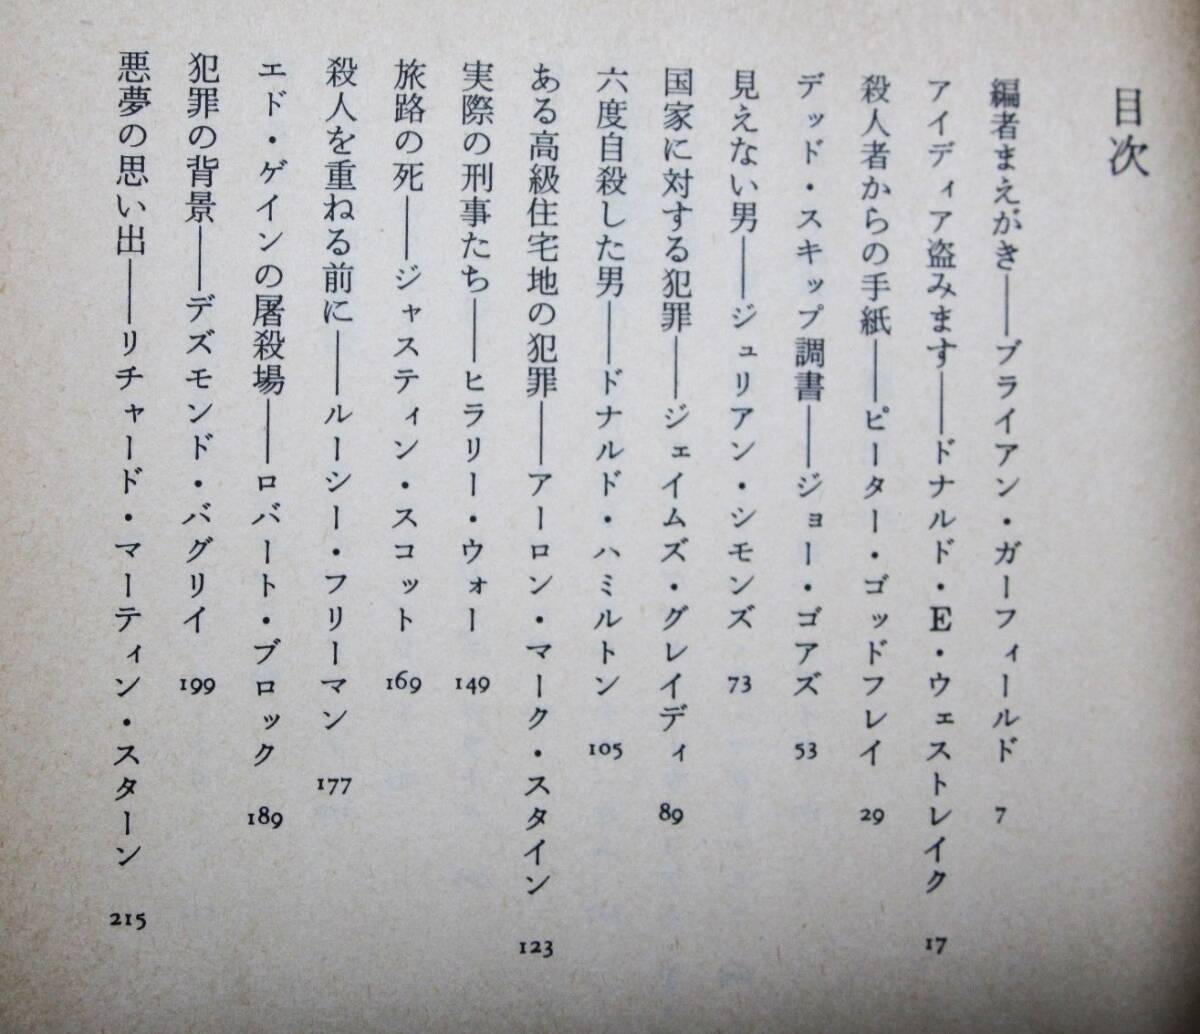 目次
編者まえがき――ブライアン・ガーフィールド 7
アイディア盗みます――ドナルド・E・ウェストレイク 17
殺人者からの手紙――ピーター・ゴッドフレイ 29
デッド・スキップ調書――ジョー・ゴアズ 53
見えない男――ジュリアン・シモンズ 73
国家に対する犯罪――ジェイムズ・グレイディ 89
六度自殺した男――ドナルド・ハミルトン 105
ある高級住宅地の犯罪――アーロン・マーク・スタイン 123
実際の刑事たち――ヒラリー・ウォー 149
旅路の死――ジャスティン・スコット 169
殺人を重ねる前に――ルーシー・フリーマン 177
エド・ゲインの屠殺場――ロバート・ブロック 189
犯罪の背景――デズモンド・バグリイ 199
悪夢の思い出――リチャード・マーティン・スターン 215